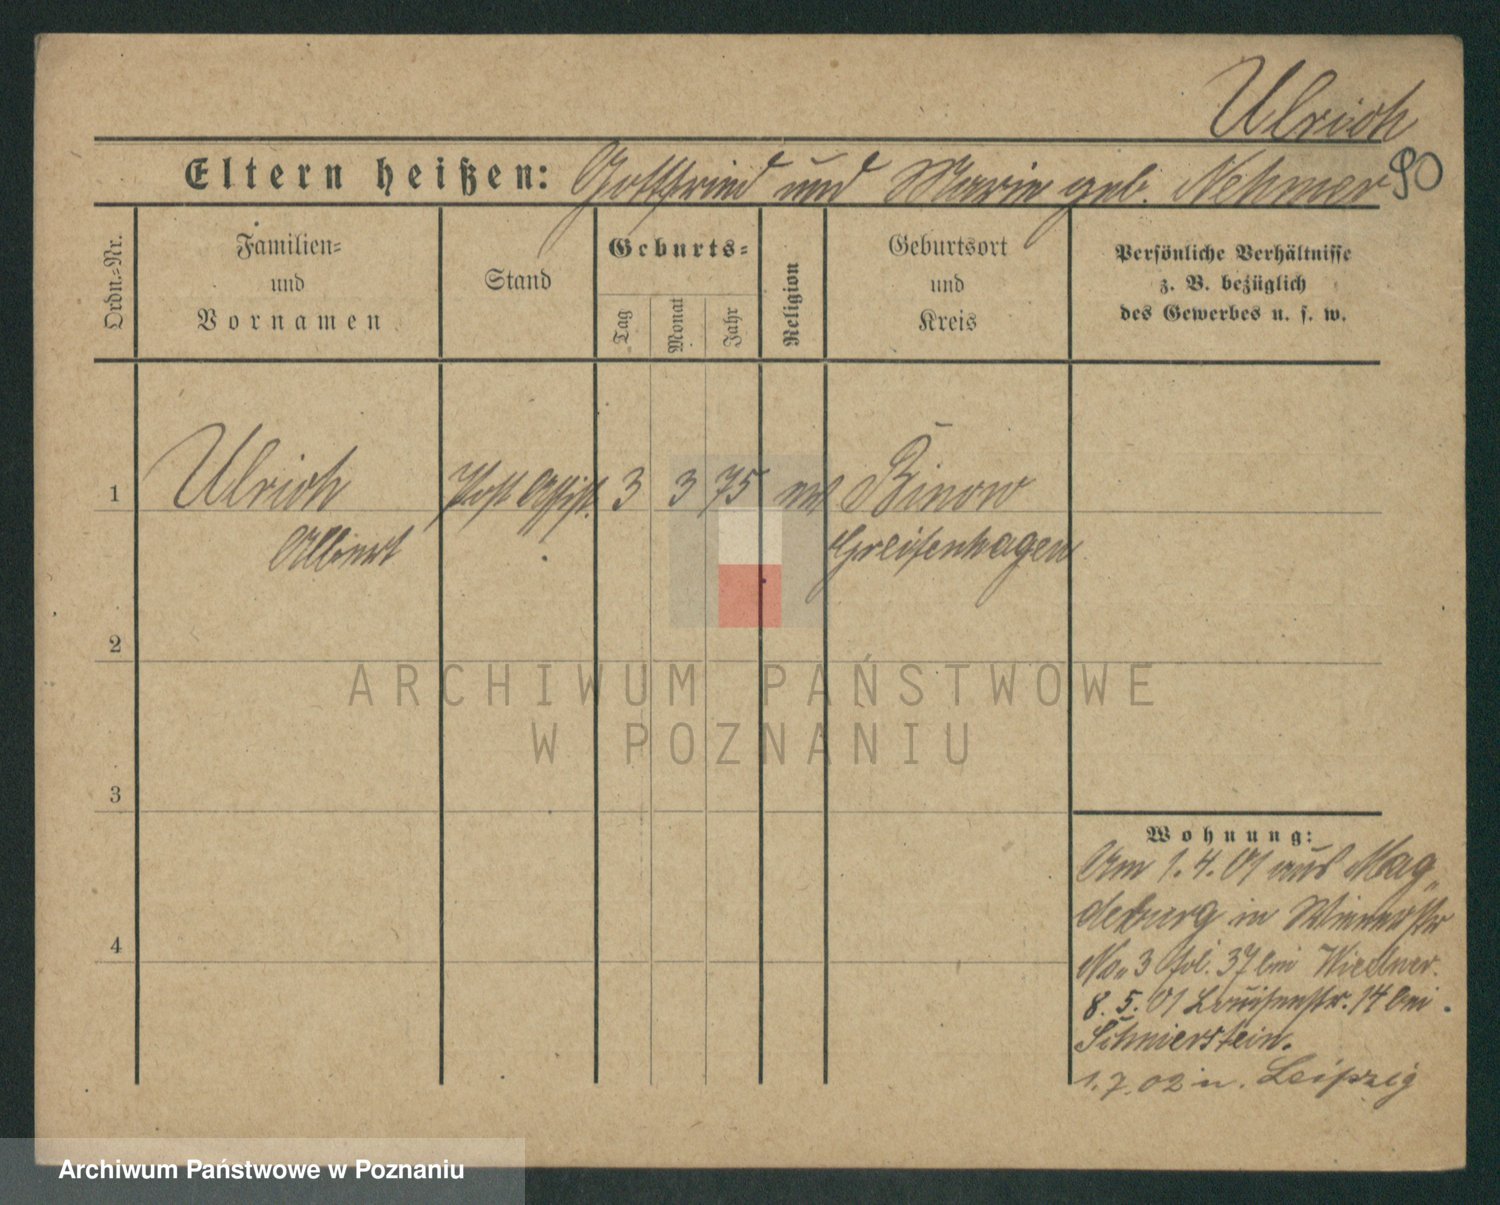 Ulrich
Eltern heißen: Gottfried und Marie geb. Nehmer 90
Ordn.-Nr.
Familien-
und
Vornamen
Stand
Geburts-
Tag
Monat
Jahr
Religion
Geburtsort
und
Kreis
Persönliche Verhältnisse
z. B. bezüglich
des Gewerbes u. s. w.
1 Ulrich Post Assist. 3 3 75 ev Binow
Albert Greifenhagen
2
ARCHIWUM PAŃSTWOWE
W POZNANIU
3
Wohnung:
Am 1.4.01 aus Mag„
deburg in Wienerstr
No. 3 fol. 37 bei
8. 5. 01 Louisenstr. 14 bei
Schmierstein.
1.7.02 n. Leipzig
4
Archiwum Państwowe w Poznaniu